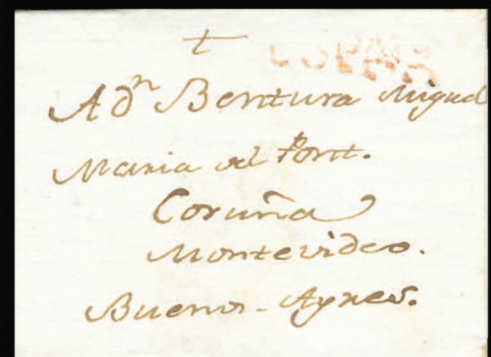 t
ESPAÑA
A Dn Bentura Miguel
Maria del Pont.
Coruña
Montevideo.
Buenos-Ayres.